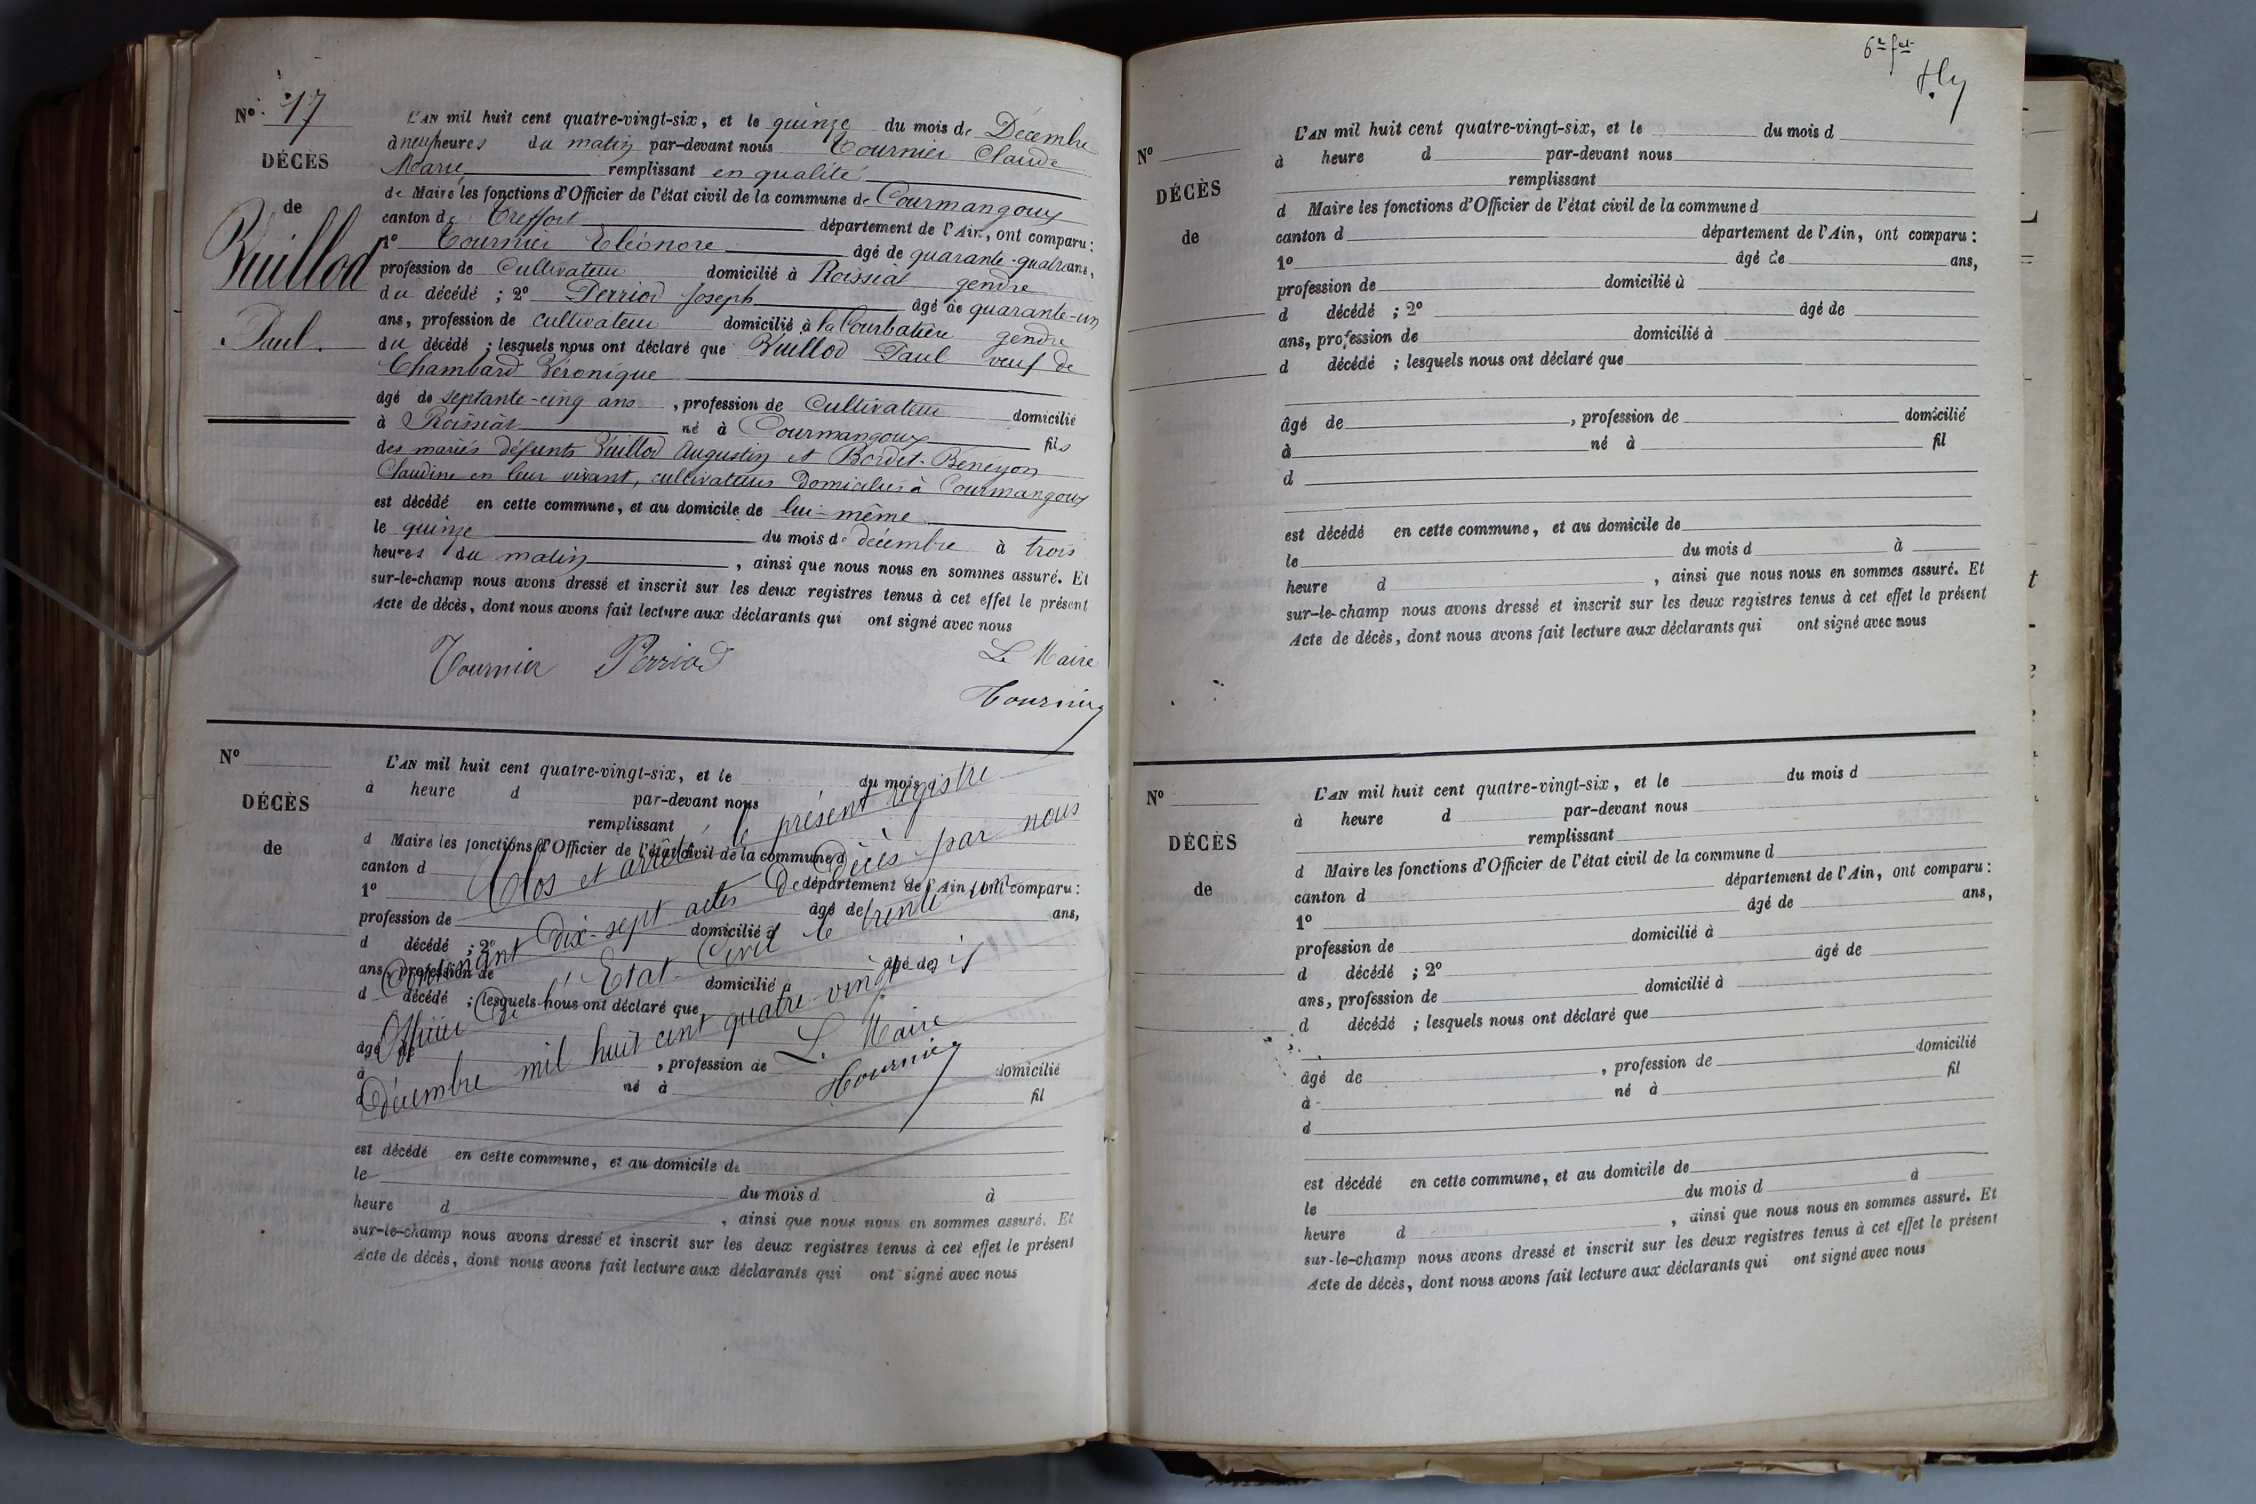 N° 17
DÉCÈS
de
Vuillod
Paul
L'AN mil huit cent quatre-vingt-six, et le quinze du mois de Décembre
à neuf heures du matin par-devant nous Tournier Claude
Marie remplissant en qualité
de Maire les fonctions d'Officier de l'état civil de la commune de Courmangoux
canton de Treffort département de l'Ain, ont comparu :
1° Tournier Eléonore âgé de quarante-quatre ans,
profession de Cultivateur domicilié à Roissiat gendre
du décédé ; 2° Perriod Joseph âgé de quarante-un
ans, profession de cultivateur domicilié à la Courbatière gendre
du décédé ; lesquels nous ont déclaré que Vuillod Paul veuf de
Chambard Véronique
âgé de septante-cinq ans, profession de Cultivateur domicilié
à Roissiat né à Courmangoux fils
des mariés défunts Vuillod Augustin et Bordet-Benéyon
Claudine en leur vivant, cultivateurs domiciliés à Courmangoux
est décédé en cette commune, et au domicile de lui-même
le quinze du mois de décembre à trois
heures du matin, ainsi que nous nous en sommes assuré. Et
sur-le-champ nous avons dressé et inscrit sur les deux registres tenus à cet effet le présent
Acte de décès, dont nous avons fait lecture aux déclarants qui ont signé avec nous
Tournier Perriod Le Maire
Tournier
N°
DÉCÈS
de
L'AN mil huit cent quatre-vingt-six, et le du mois
à heure d par-devant nous
remplissant
d Maire les fonctions d'Officier de l'état civil de la commune d
canton d département de l'Ain, ont comparu :
1° âgé de ans,
profession de domicilié à
d décédé ; 2° âgé de
ans, profession de domicilié à
d décédé ; lesquels nous ont déclaré que
âgé de , profession de domicilié
à né à fil
d
est décédé en cette commune, et au domicile de
le du mois d à
heure d , ainsi que nous nous en sommes assuré. Et
sur-le-champ nous avons dressé et inscrit sur les deux registres tenus à cet effet le présent
Acte de décès, dont nous avons fait lecture aux déclarants qui ont signé avec nous
Clos et arrêté le présent registre
Contenant dix-sept actes de Décès par nous
Officier de l'Etat-Civil le trente-un
Décembre mil huit cent quatre-vingt-six
Le Maire
Tournier
N°
DÉCÈS
de
L'AN mil huit cent quatre-vingt-six, et le du mois d
à heure d par-devant nous
remplissant
d Maire les fonctions d'Officier de l'état civil de la commune d
canton d département de l'Ain, ont comparu :
1° âgé de ans,
profession de domicilié à
d décédé ; 2° âgé de
ans, profession de domicilié à
d décédé ; lesquels nous ont déclaré que
âgé de , profession de domicilié
à né à fil
d
est décédé en cette commune, et au domicile de
le du mois d à
heure d , ainsi que nous nous en sommes assuré. Et
sur-le-champ nous avons dressé et inscrit sur les deux registres tenus à cet effet le présent
Acte de décès, dont nous avons fait lecture aux déclarants qui ont signé avec nous
N°
DÉCÈS
de
L'AN mil huit cent quatre-vingt-six, et le du mois d
à heure d par-devant nous
remplissant
d Maire les fonctions d'Officier de l'état civil de la commune d
canton d département de l'Ain, ont comparu :
1° âgé de ans,
profession de domicilié à
d décédé ; 2° âgé de
ans, profession de domicilié à
d décédé ; lesquels nous ont déclaré que
âgé de , profession de domicilié
à né à fil
d
est décédé en cette commune, et au domicile de
le du mois d à
heure d , ainsi que nous nous en sommes assuré. Et
sur-le-champ nous avons dressé et inscrit sur les deux registres tenus à cet effet le présent
Acte de décès, dont nous avons fait lecture aux déclarants qui ont signé avec nous